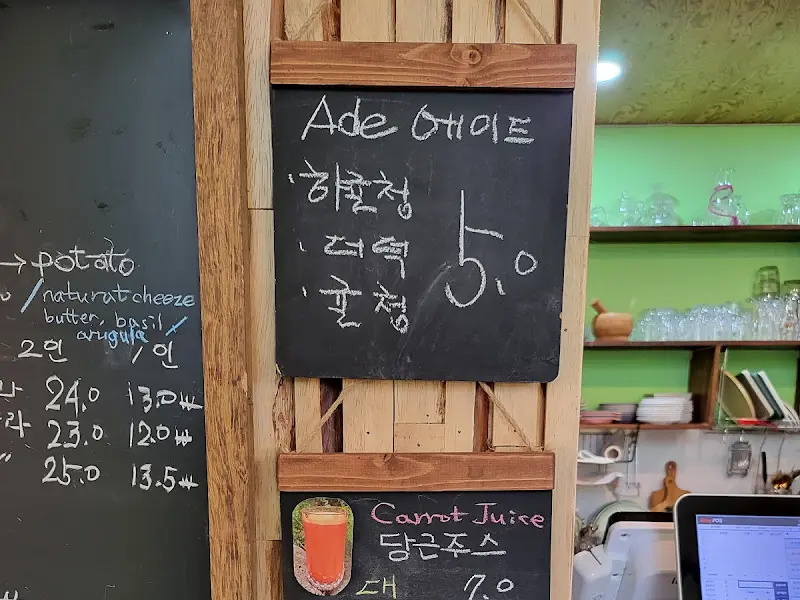 → potato
natural cheeze
butter, basil
arugula
2인 1인
24.0 13.0₩
23.0 12.0₩
25.0 13.5₩
Ade 에이드
하귤청
귤청
5.0
Carrot Juice
당근주스
대 7.0